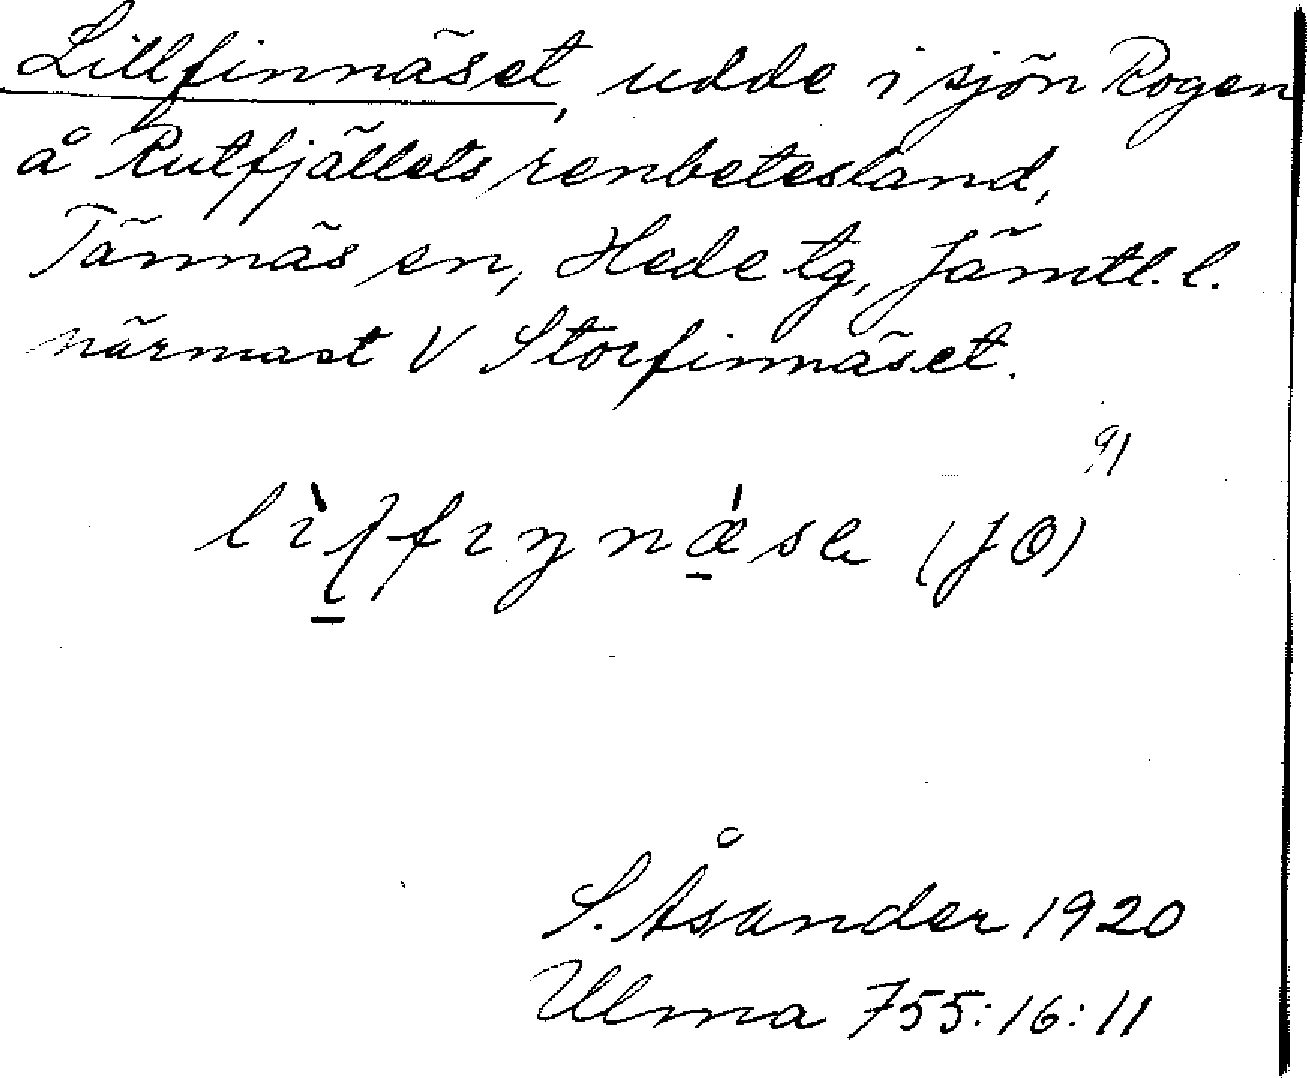 Lillfinnäset, udde i sjön Rogen
å Rutfjällets renbetesland,
Tännäs sn, Hede tg, Jämtl. l.
närmast V Storfinnäset.
(JÖ)
S. Åsander 1920
Ulma 755:16:11